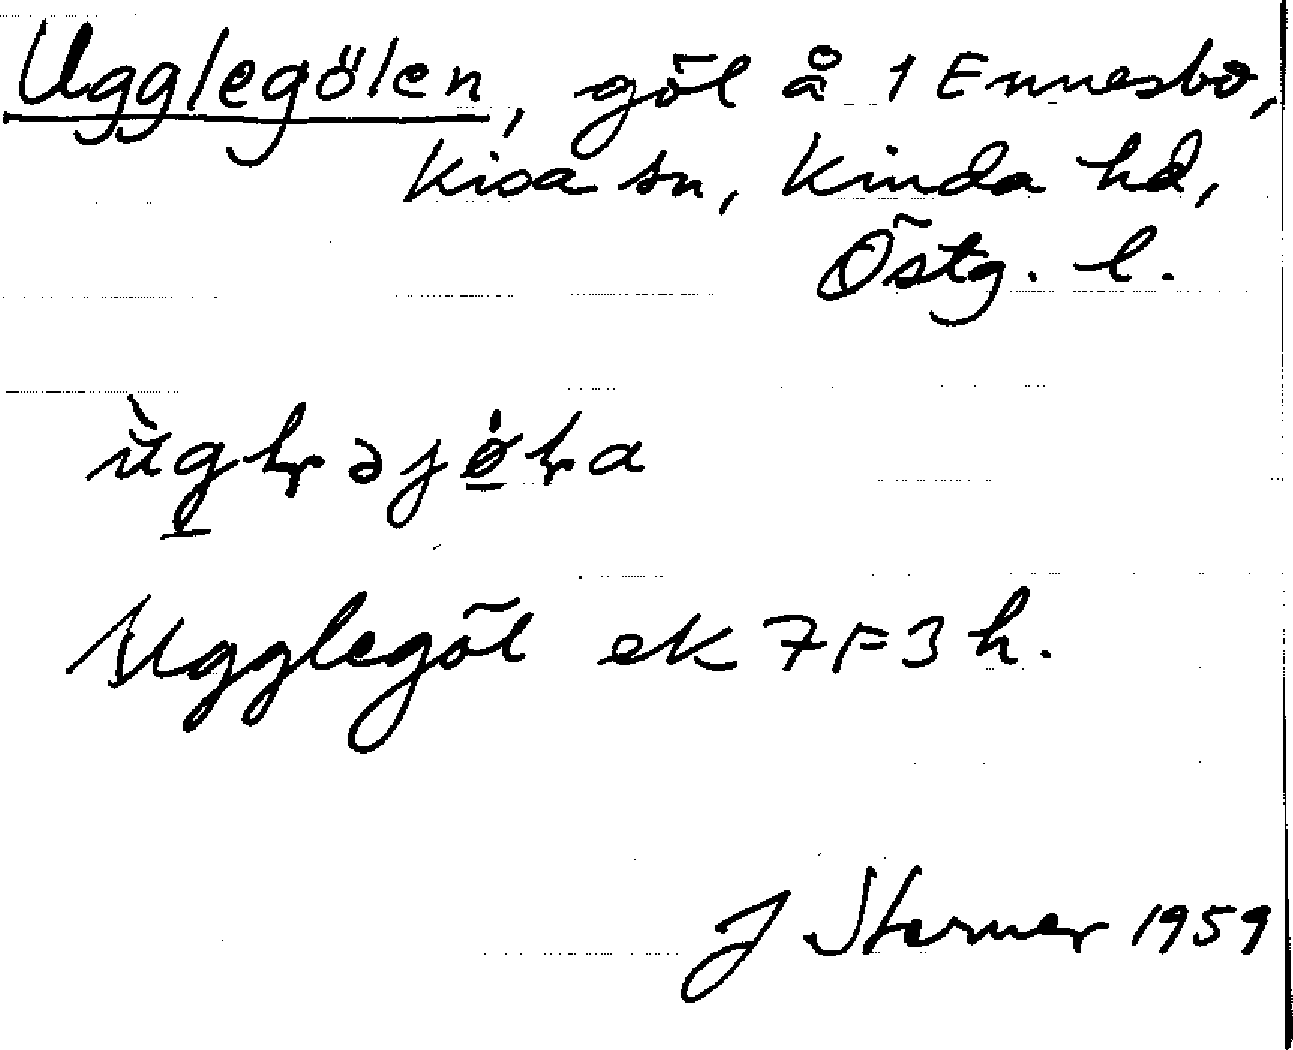 Ugglegölen, göl å 1 Ennesbo,
Kisa sn, Kinda hd,
Östg. l.
Ugglegöl ek 7F3h.
J Sterner 1959